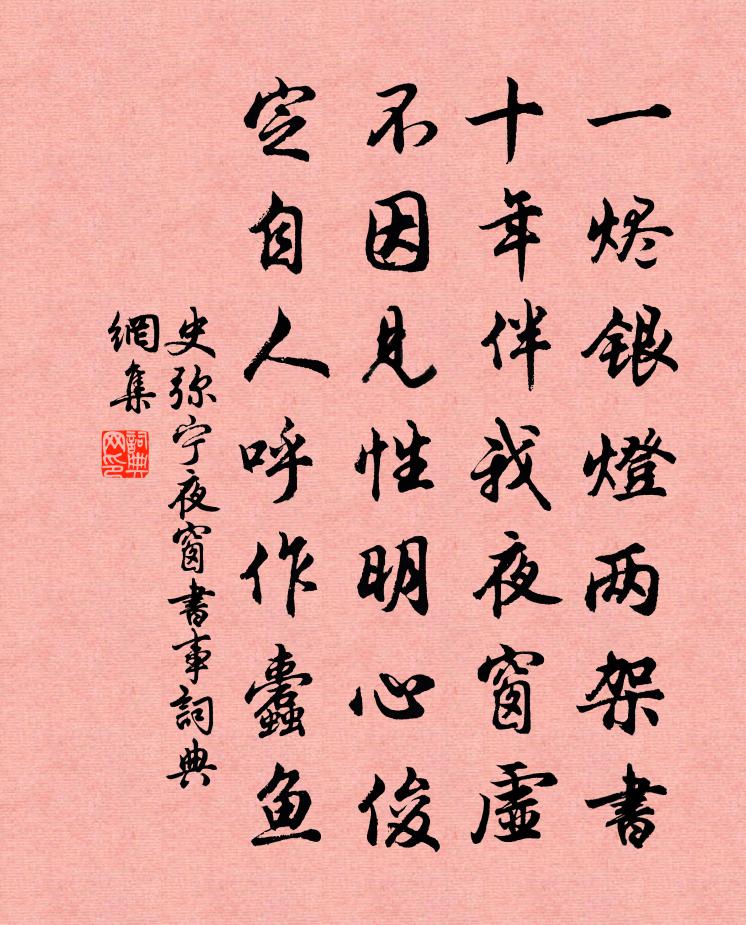 一烬银燈两架書
十年伴我夜窗虚
不因見性明心俊
定自人呼作蠹鱼
史弥宁夜窗書事詞典
網集
詞典網印